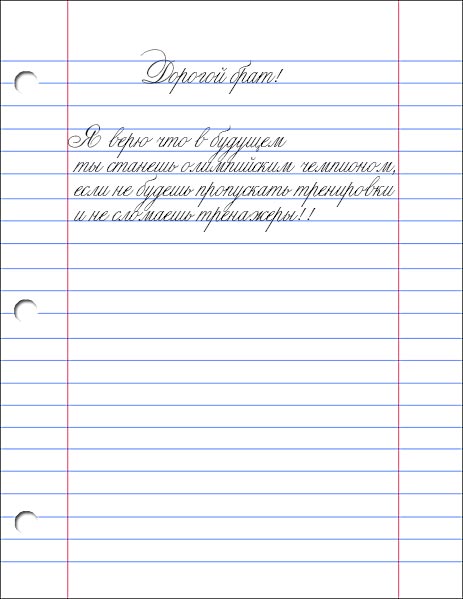 Дорогой брат!
Я верю что в будущем
ты станешь олимпийским чемпионом,
если не будешь пропускать тренировки
и не сломаешь тренажеры!!